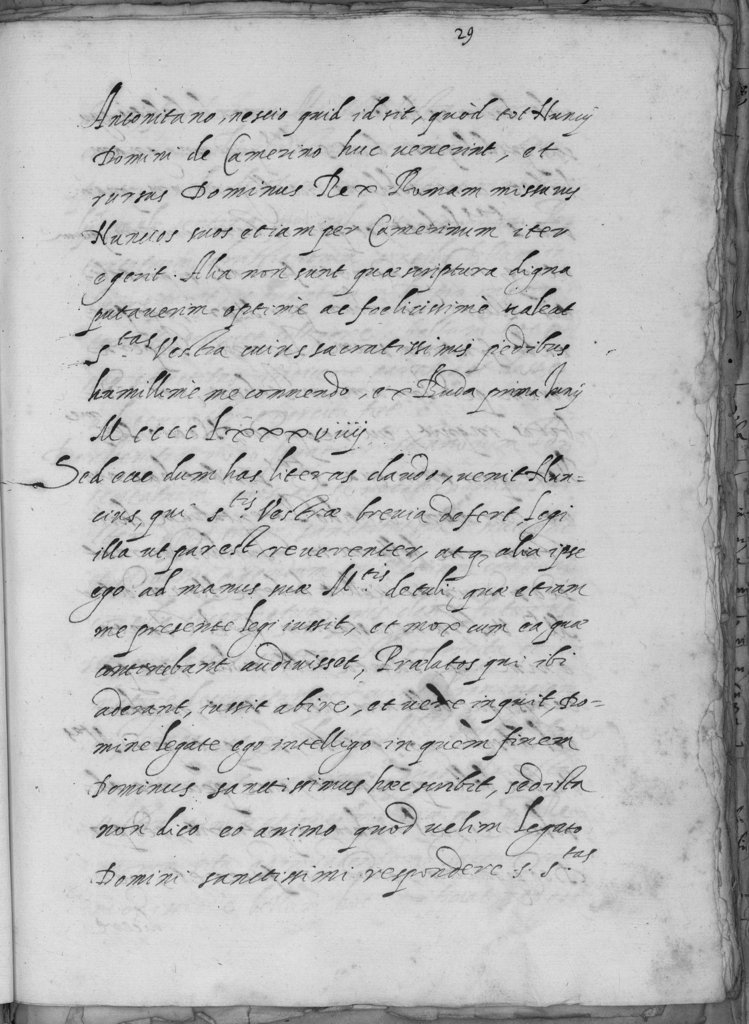 29
Anconitano, nescio quid id sit, quòd tot Nuncij
Domini de Camerino huc venerint, et
rursus Dominus Rex Romam missurus
Nuncios suos etiam per Camerinum iter
egerit. Alia non sunt quæ scriptura digna
putaverim optimè ac foelicissimè valeat
S.tas Vestra cuius sacratissimis pedibus
humillimè me commendo, ex Buda prima Junij
M cccc Lxxxviiij
Sed ecce dum has literas claudo, venit Nun=
cius, qui S.tis Vestræ brevia defert, Legi
illa ut par est reverenter, atq, alia ipse
ego ad manus suæ M.tis detuli, quæ etiam
me presente legi iussit, et mox cum ea, quæ
continebant audivisset, Prælatos qui ibi
aderant, iussit abire, et vere inquit, Do=
mine legate ego intelligo in quem finem
Dominus sanctissimus hæc scribit, sed ista
non dico eo animo quòd velim Legato
Domini sanctissimi respondere S. S.tas